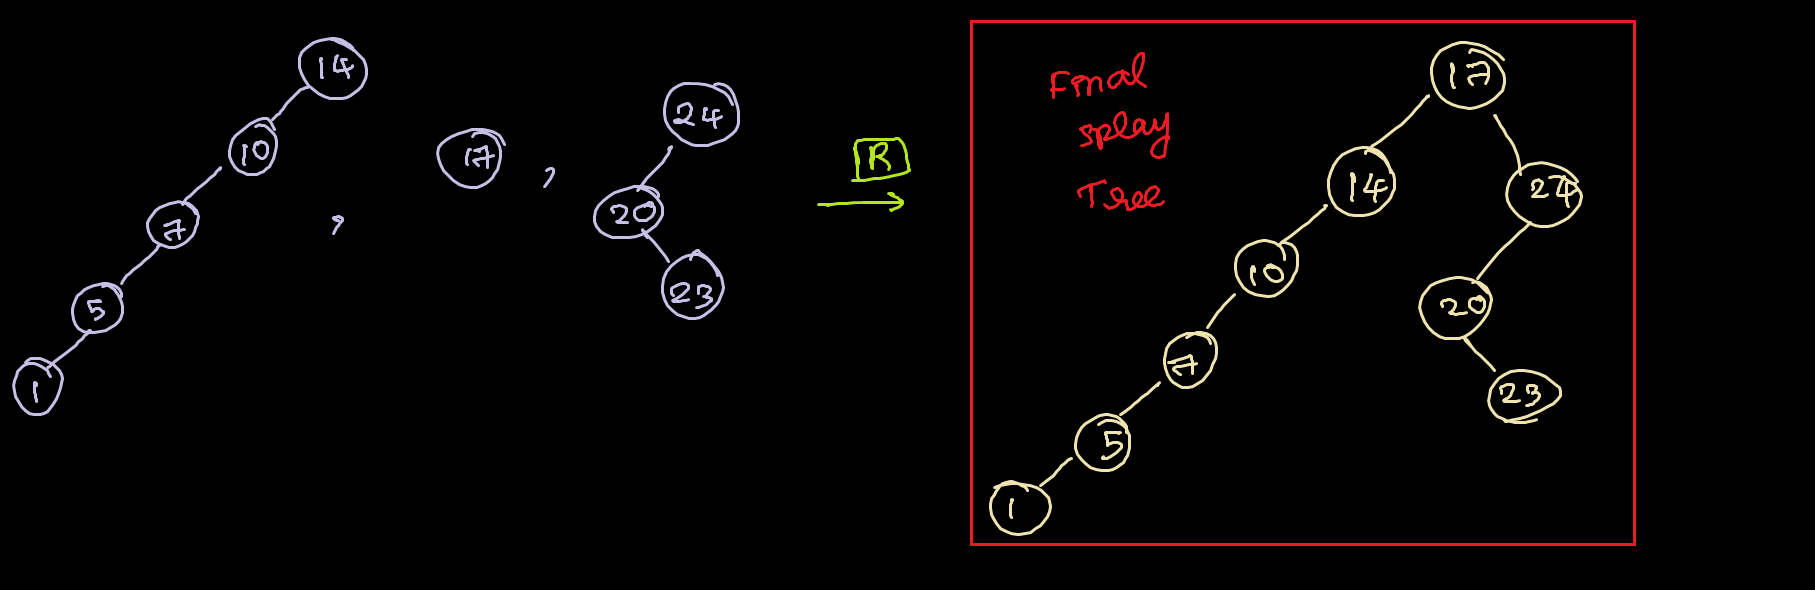 14
10
7
5
1
,
17
,
24
20
23
R
Final
splay
Tree
17
14
24
10
20
7
23
5
1